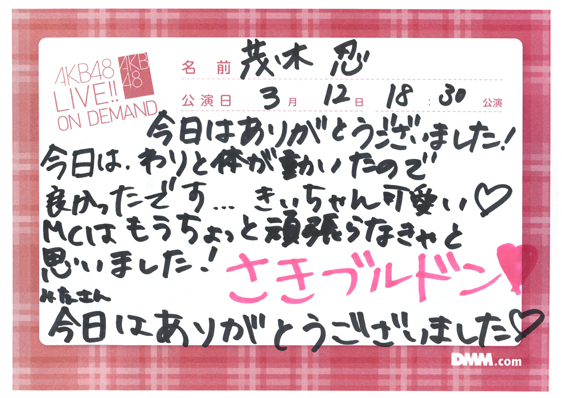 AKB48
LIVE!!
ON DEMAND
AKB
48
名前 茂木 忍
公演日 3月 12日 18:30 公演
今日はありがとうございました!
今日は、わりと体が動いたので
良かったです... きぃちゃん可愛い♡
MCはもうちょっと頑張らなきゃと
思いました!
さきブルドン♥
みなさん
今日はありがとうございました♡
DMM.com